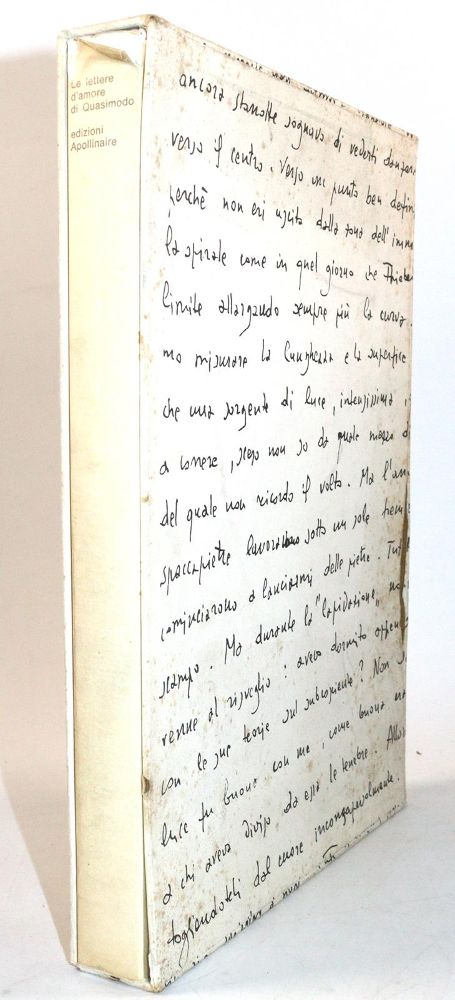 Le lettere
d'amore
di Quasimodo
edizioni
Apollinaire
ancora stanotte sognavo di vederti
verso il centro. Verso un punto ben
perchè non eri uscita dalla zona dell'
la spirale come in quel giorno che
limite allargando sempre più la curva.
mo misurare la lunghezza e la superfice
che una sorgente di luce, intensissima,
a correre, spero non so da quale
del quale non ricordo il volto. Ma
spaccapietre lavoravano sotto un sole
cominciarono a lanciarmi delle pietre.
scampo. Ma durante la "lapidazione"
venne al risveglio: avevo dormito
con le sue teorie sul subcosciente? Non
luce fu buona con me, come buona
a chi aveva diviso da essa le tenebre.
togliendoteli dal cuore inconsapevolmente.